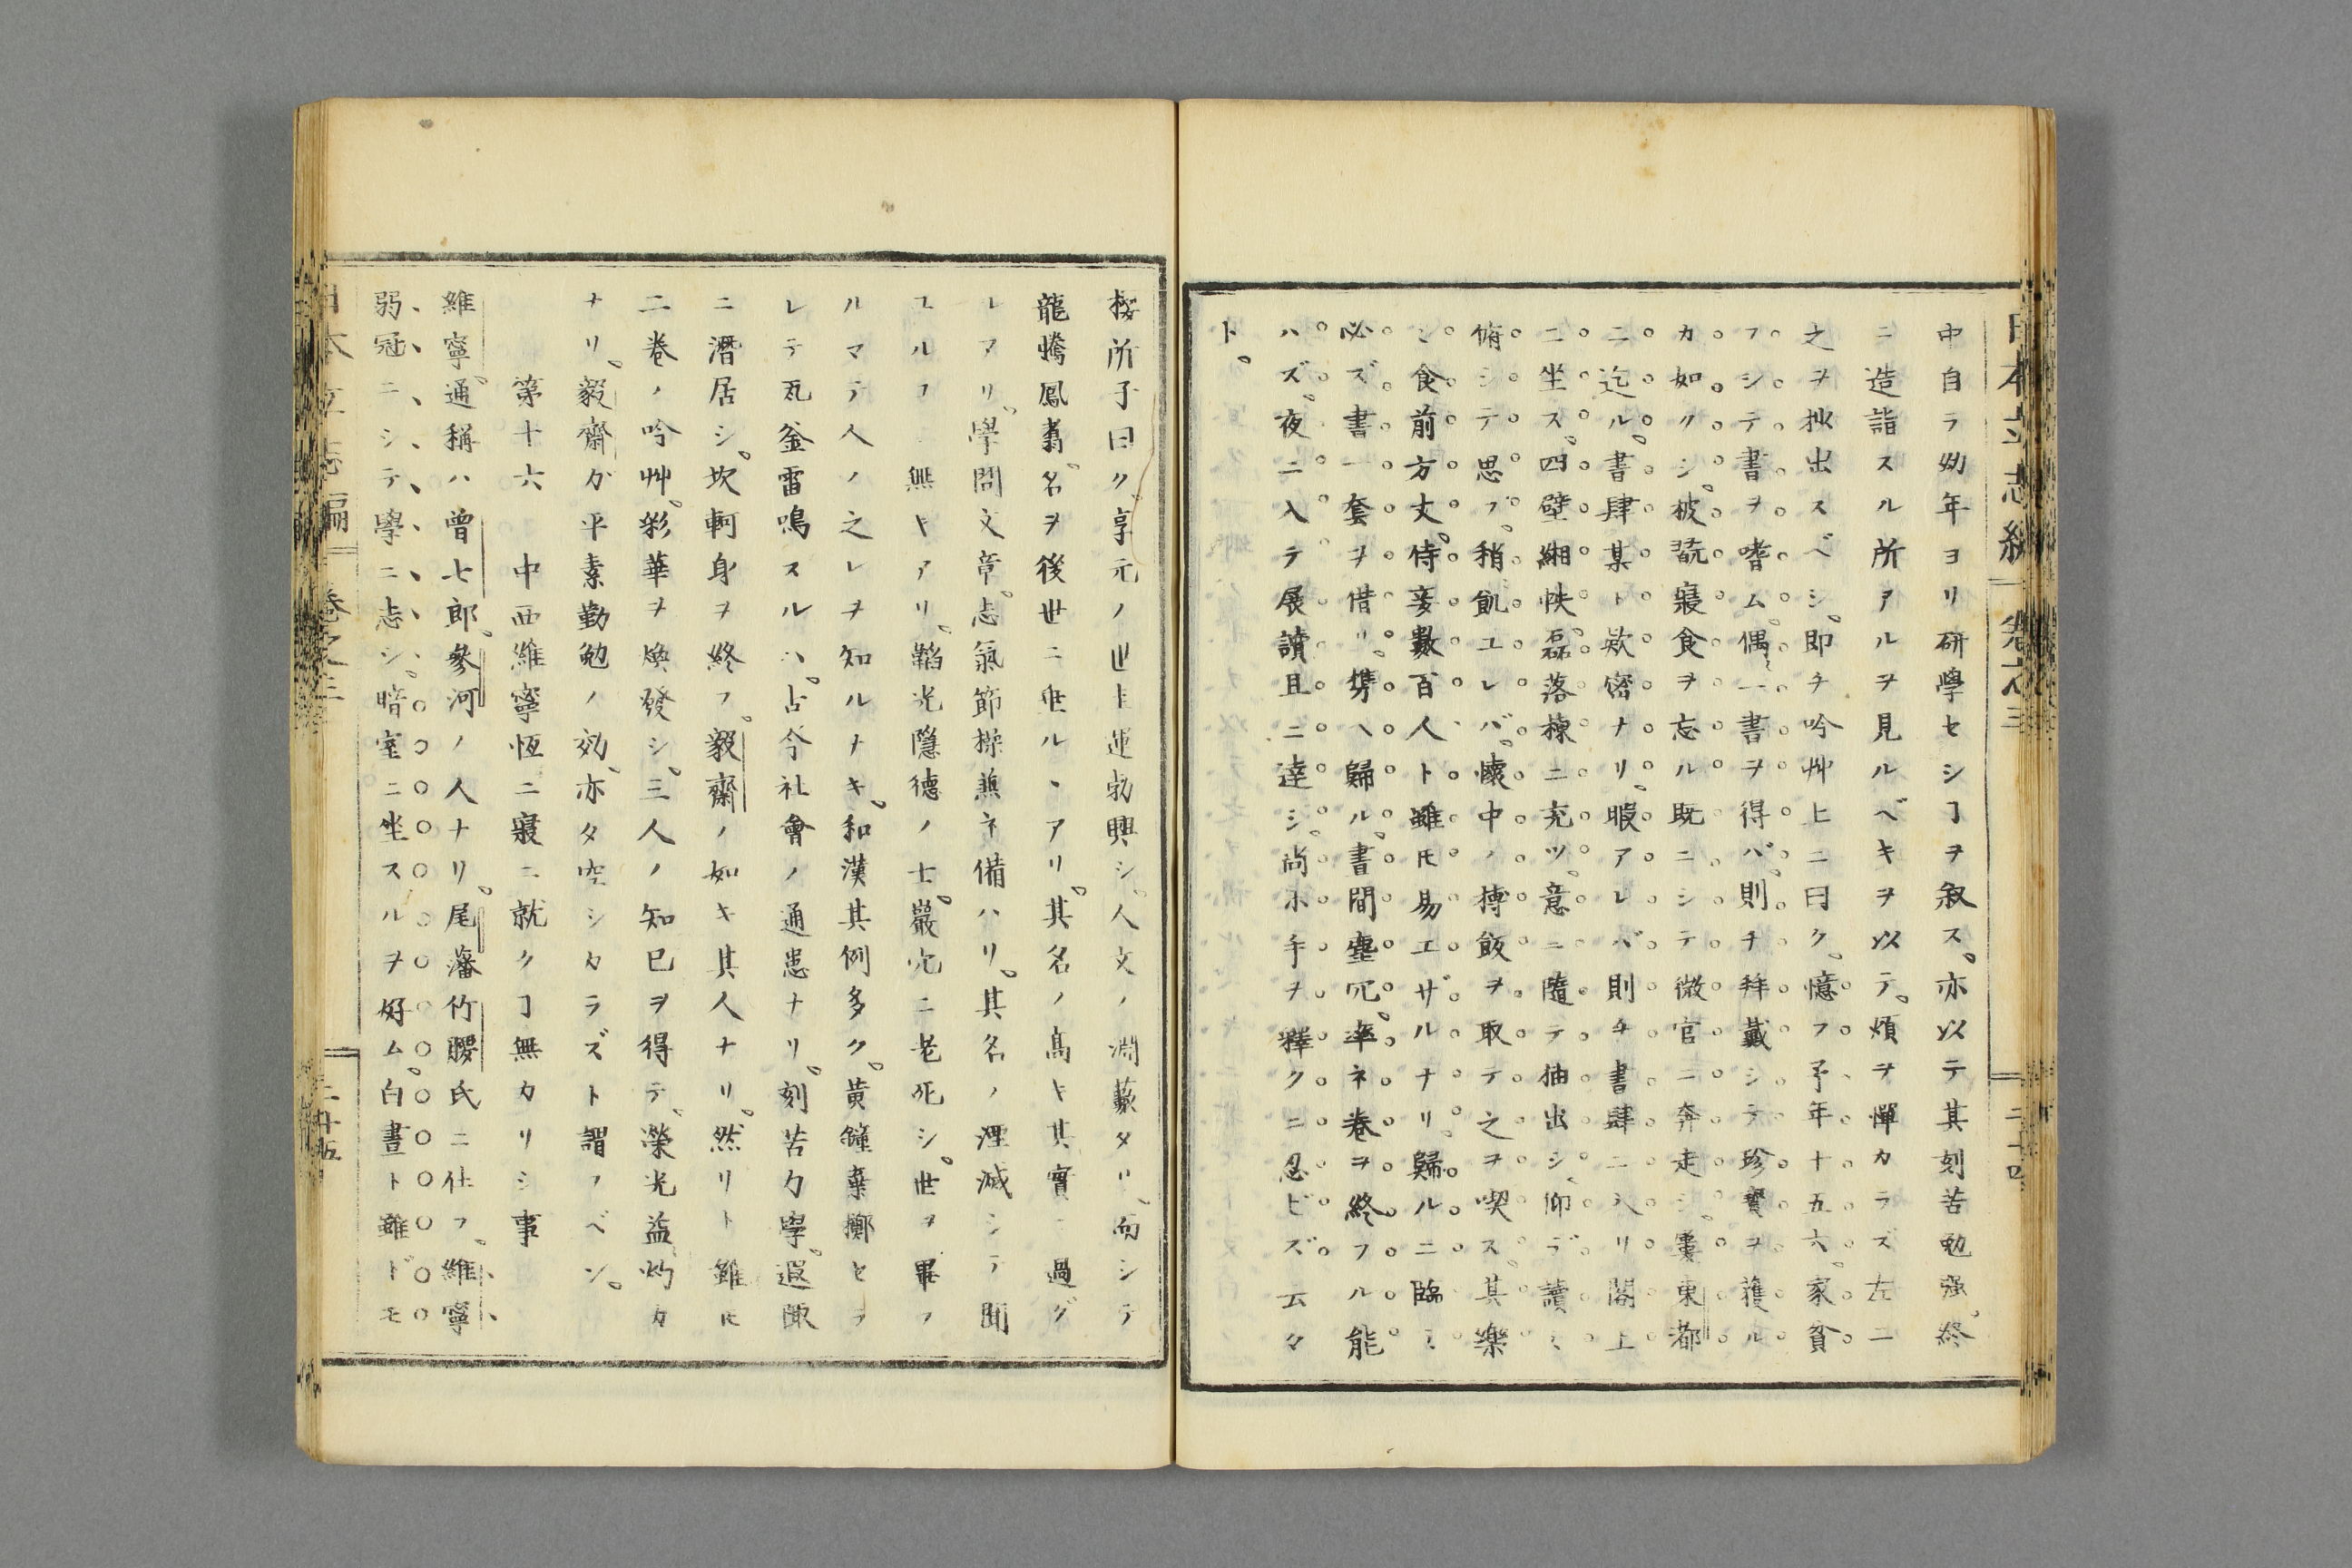 中自ラ幼年ヨリ研學セシヿヲ叙ス。亦以テ其刻苦勉强。終
ニ造詣スル所アルヲ見ルベキヲ以テ。煩ヲ憚カラズ左ニ
之ヲ抄出スベシ。即チ吟艸上ニ曰ク。憶フ予年十五六。家貧
フシテ書ヲ嗜ム。偶〻一書ヲ得バ。則チ拜戴シテ珍寳ヲ獲ル
カ如クシ。披翫寢食ヲ忘ル既ニシテ微官ニ奔走シ。東都
ニ迄ル。書肆某ト欵密ナリ。暇アレバ則チ書肆ニ入リ閣上
ニ坐ス。四壁緗帙。磊落棟ニ充ツ。意ニ隨テ抽出シ。仰デ讀ミ
俯シテ思フ。稍飢ユレバ。懷中ノ摶飯ヲ取テ之ヲ喫ス。其樂
ミ食前方丈。侍妾數百人ト雖𪜈易エザルナリ。歸ルニ臨ミ
必ズ書一套ヲ借リ。携ヘ歸ル。書間塵冗。率ネ卷ヲ終フル能
ハズ。夜ニ入テ展讀且ニ達シ。尚ホ手ヲ釋クニ忍ビズ云々
ト。
日本立志編 卷之三 二十四
櫻所子曰ク。享元ノ世文運勃興シ。人文ノ淵藪タリ。而シテ
龍騰鳳翥。名ヲ後世ニ埀ル丶アリ。其名ノ高キ其實ニ過グ
レアリ。學問文章。志氣節操兼ネ備ハリ。其名ノ湮滅シテ聞
ユルフ無キアリ。韜光隱德ノ士。巖穴ニ老死シ。世ヲ畢フ
ルマテ人ノ之レヲ知ルナキ。和漢其例多ク。黄鐘棄擲セラ
レテ瓦釜雷鳴スルハ。古今社會ノ通患ナリ。刻苦力學。遐陬
ニ潛居シ。坎軻身ヲ終フ。毅齋ノ如キ其人ナリ。然リト雖𪜈
二卷ノ吟艸。彩華ヲ煥發シ。三人ノ知已ヲ得テ。榮光益灼カ
ナリ。毅齋ガ平素勤勉ノ効。亦タ空シカラズト謂フベシ。
第十六 中西維寧恆ニ寢ニ就クヿ無カリシ事
維寧。通稱ハ曾七郎。參河ノ人ナリ。尾藩竹腰氏ニ仕フ。維寧
弱冠ニシテ學ニ志シ。暗室ニ坐スルヲ好ム。白晝ト雖ドモ
日本立志編 卷之三 二十五